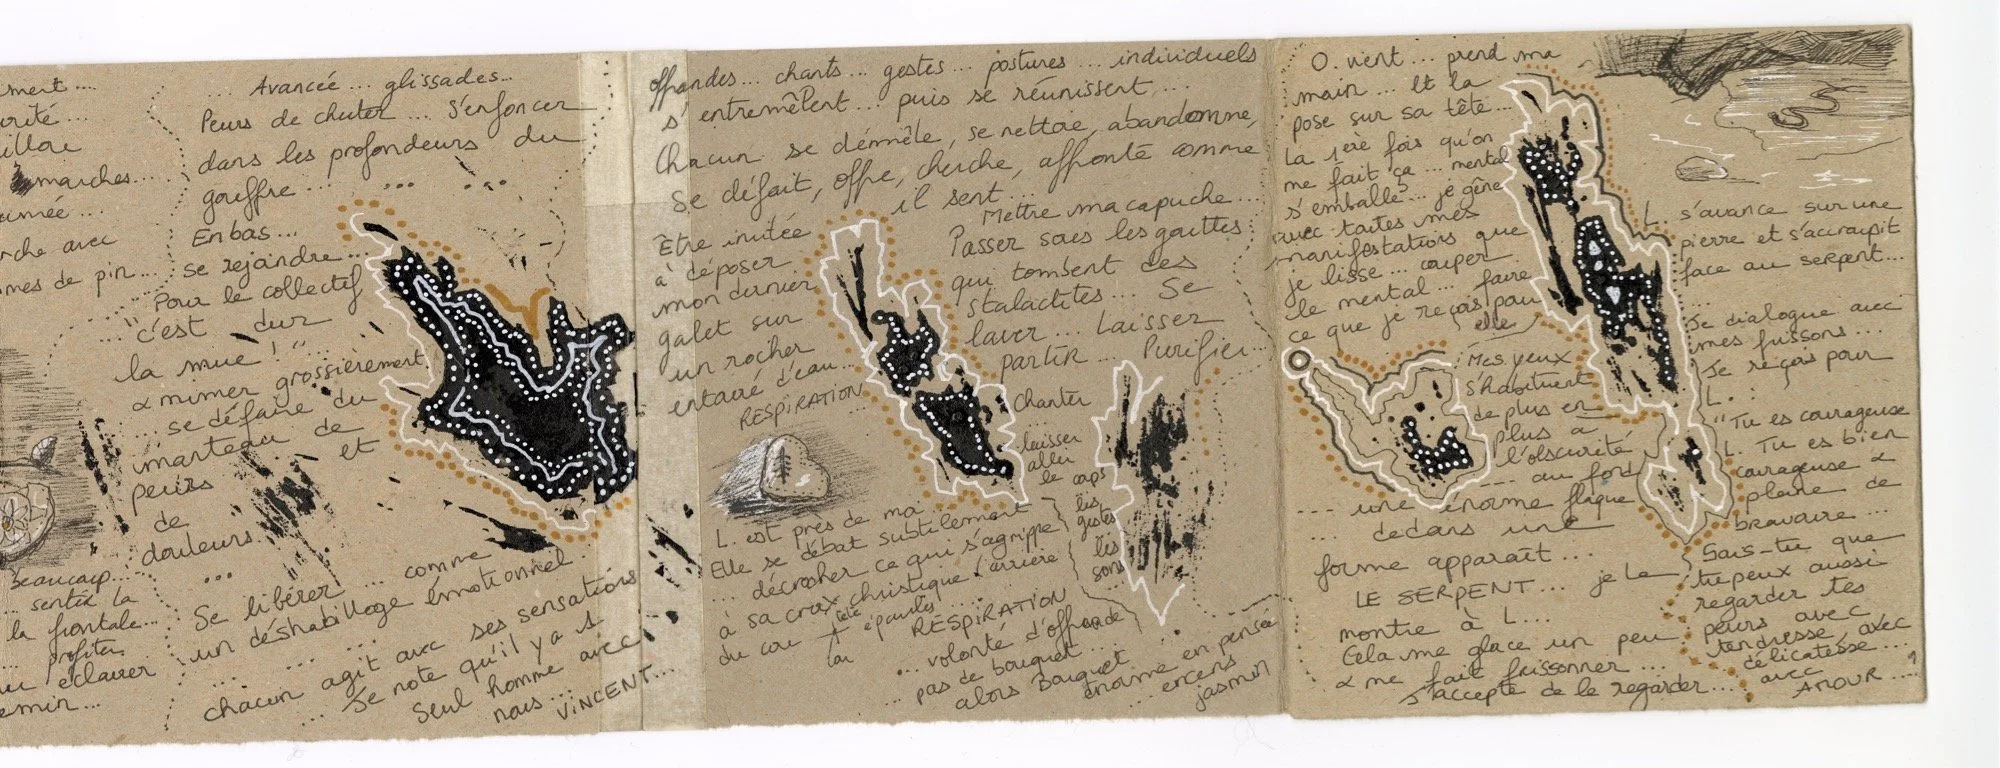 ment ...
urité ...
marches...
umée ...
rche avec
mes de pin...
Beaucoup...
... sentir la
la frontale...
... profiter
éclairer
emin...
... Avancée ... glissades...
Peurs de chuter ... S'enfoncer
dans les profondeurs du
gouffre ... ... ...
En bas ...
se rejoindre ...
Pour le collectif
... "c'est dur
la mue !" ...
& mimer grossièrement
... se défaire du
manteau de
peurs et
de
douleurs...
...
Se libérer ... comme
un déshabillage émotionnel ...
... ... ...
chacun agit avec ses sensations
... Je note qu'il y a 1
seul homme avec
nous ...
VINCENT...
offrandes... chants... gestes... postures... individuels
s'entremêlent... puis se réunissent ...
Chacun se démêle, se nettoie, abandonne,
se défait, offre, cherche, affronte comme
il sent...
Être invitée
à déposer
mon dernier
galet sur
un rocher
entouré d'eau...
RESPIRATION
...
Mettre ma capuche...
Passer sous les gouttes
qui tombent des
stalactites... Se
laver ... Laisser
partir ... Purifier...
Chanter
laisser
aller
le corps
les
gestes
les
sons
L. est près de moi
Elle se débat subtilement
... décrocher ce qui s'agrippe
à sa croix christique l'arrière
du cou tête épaules ...
cou
RESPIRATION
... volonté d'offrande
... pas de bouquet ...
alors Bouquet
énorme en pensée
... encens
jasmin
O. vient ... prend ma
main ... et la
pose sur sa tête ...
La 1ère fois qu'on
me fait ça ... mental
s'emballe ... je gêne
avec toutes mes
manifestations que
je lisse ... couper
le mental ... faire
ce que je reçois pour
elle
Mes yeux
s'habituent
de plus en
plus à
l'obscurité
... au fond
... une énorme flaque
... dedans une
forme apparaît ...
LE SERPENT ... je le
montre à L...
Cela me glace un peu
& me fait frissonner ...
J'accepte de le regarder...
L. s'avance sur une
pierre et s'accroupit
face au serpent...
...
Je dialogue avec
mes frissons ...
Je reçois pour
L. :
"Tu es courageuse
L. Tu es bien
courageuse &
pleine de
bravoure ...
Sais-tu que
tu peux aussi
regarder tes
peurs avec
tendresse avec
délicatesse ...
avec
AMOUR ... "